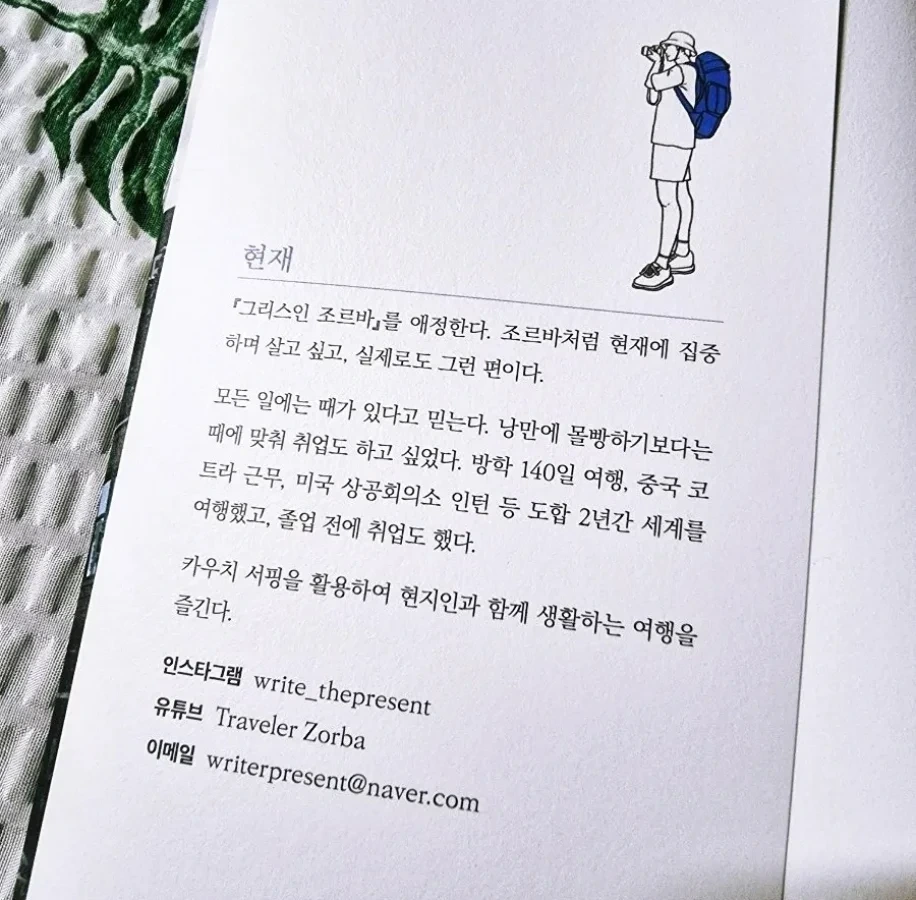 현재
『그리스인 조르바』를 애정한다. 조르바처럼 현재에 집중
하며 살고 싶고, 실제로도 그런 편이다.
모든 일에는 때가 있다고 믿는다. 낭만에 몰빵하기보다는
때에 맞춰 취업도 하고 싶었다. 방학 140일 여행, 중국 코
트라 근무, 미국 상공회의소 인턴 등 도합 2년간 세계를
여행했고, 졸업 전에 취업도 했다.
카우치 서핑을 활용하여 현지인과 함께 생활하는 여행을
즐긴다.
인스타그램 write_thepresent
유튜브 Traveler Zorba
이메일 writerpresent@naver.com